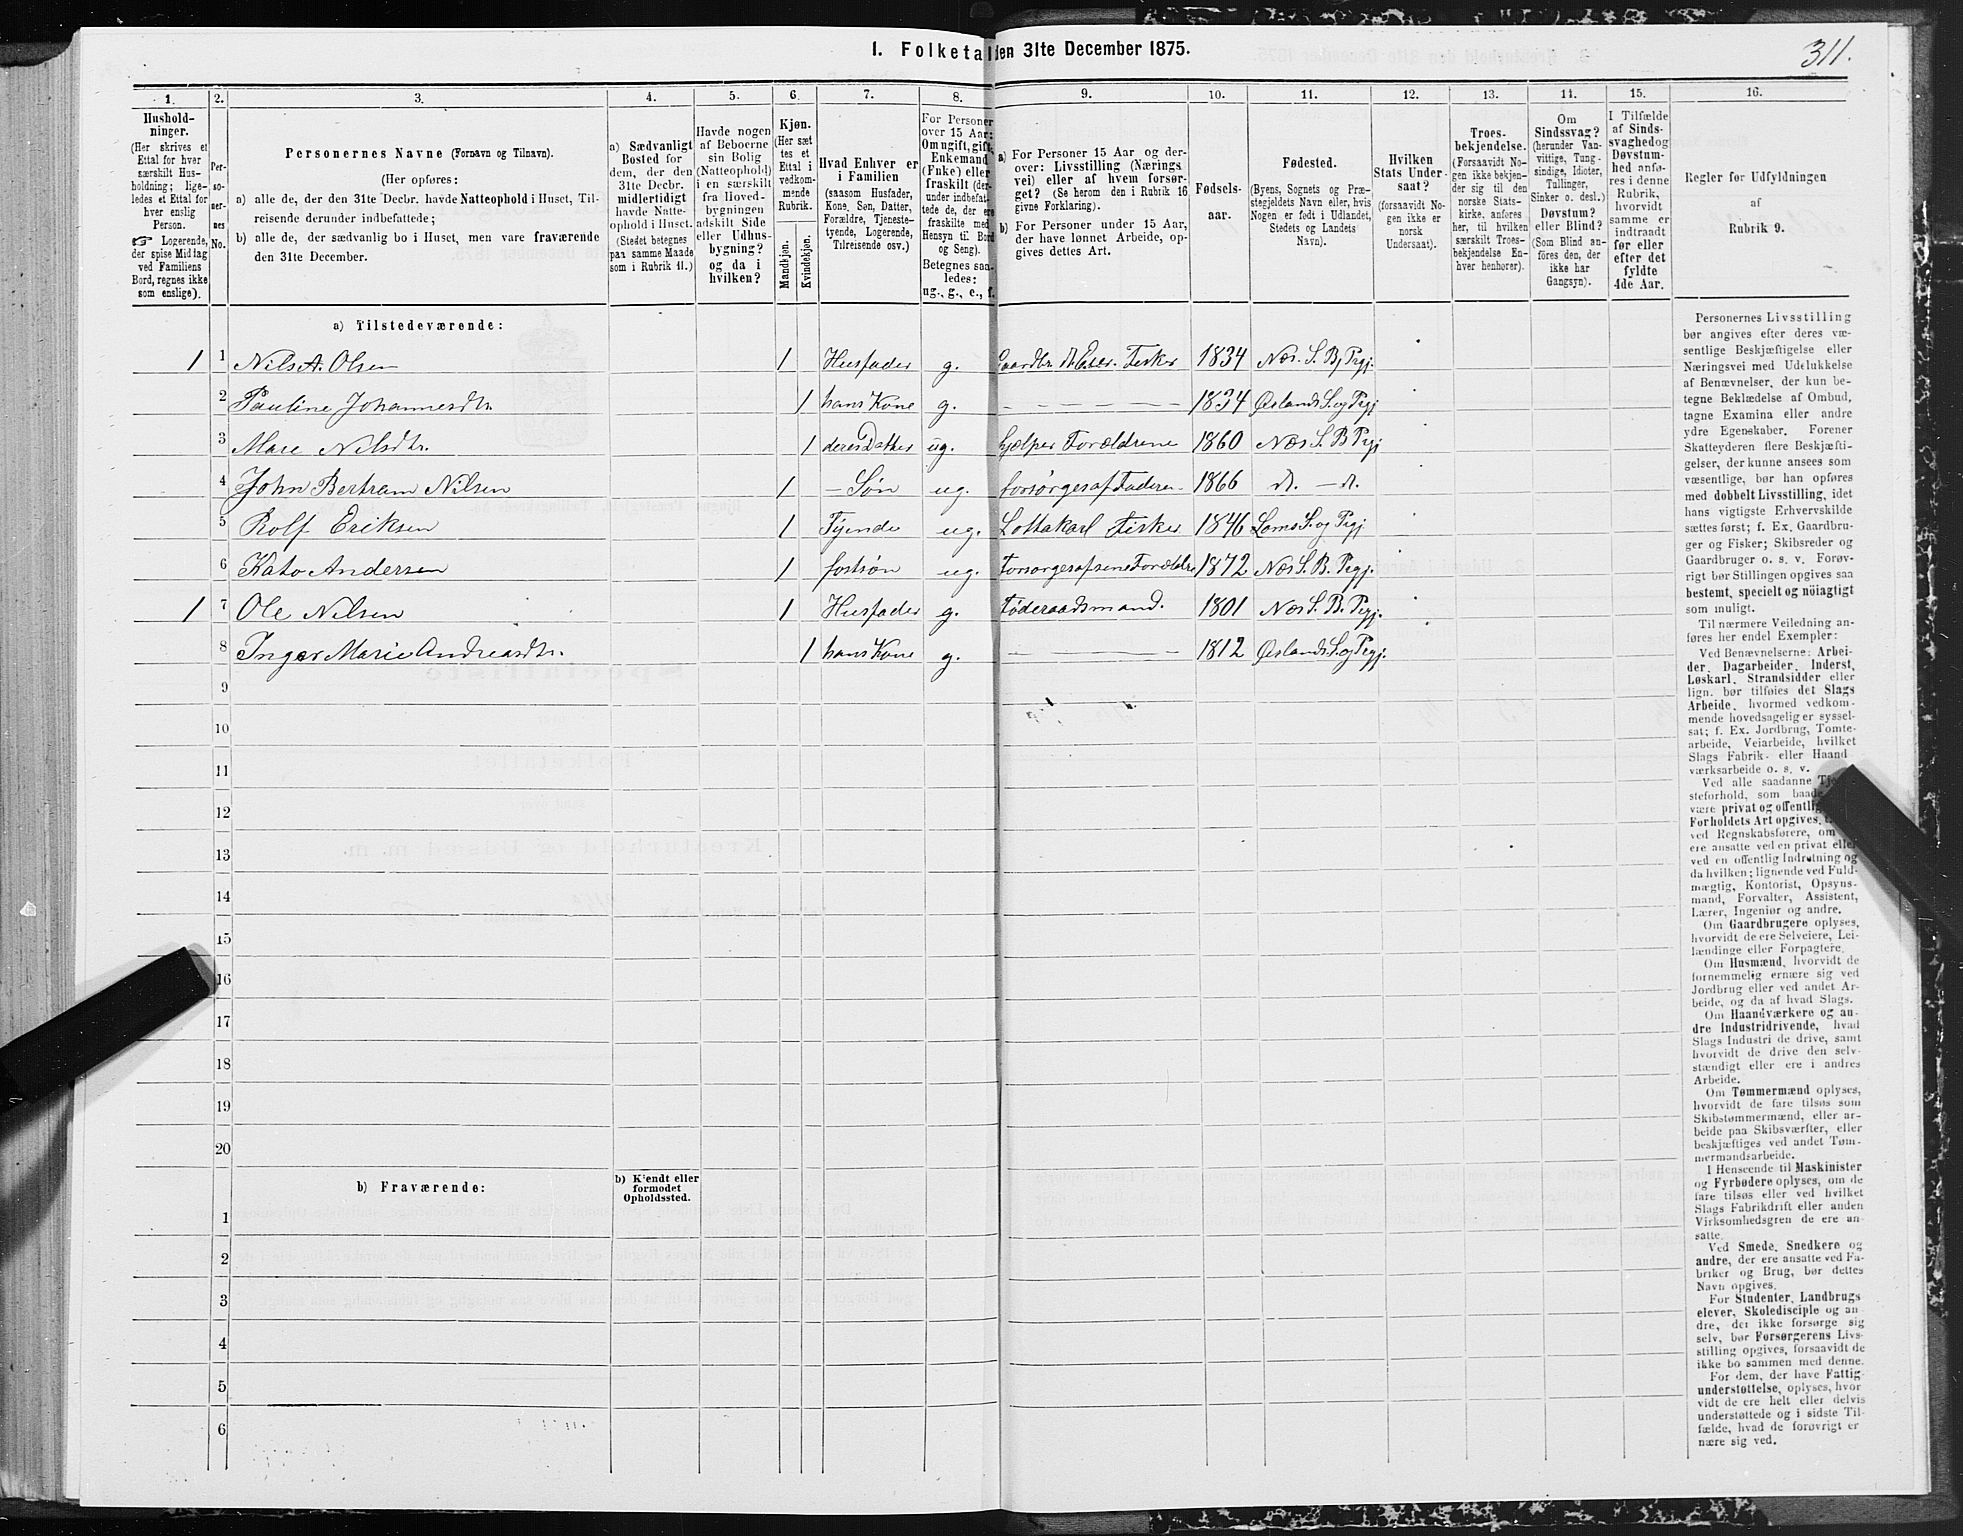 I. Folketal den 31te December 1875.
311.
1. 2. 3. 4. 5. 6. 7. 8. 9. 10. 11. 12. 13. 14. 15. 16.
Hushold-
ninger.
(Her skrives et
Ettal for hver
særskilt Hus-
holdning; lige-
ledes et Ettal for
hver enslig
Person.
☞ Logerende,
der spise Middag
ved Familiens
Bord, regnes ikke
som enslige).
Per-
so-
ner-
nes
No.
Personernes Navne (Fornavn og Tilnavn).
(Her opføres:
a) alle de, der den 31te Decbr. havde Natteophold i Huset, Til-
reisende derunder indbefattede;
b) alle de, der sædvanlig bo i Huset, men vare fraværende
den 31te December.
a) Sædvanligt
Bosted for
dem, der den
31te Decbr.
midlertidigt
havde Natte-
ophold i Huset.
(Stedet betegnes
paa samme Maade
som i Rubrik 11.)
Havde nogen
af Beboerne
sin Bolig
(Natteophold)
i en særskilt
fra Hoved-
bygningen
adskilt Side
eller Udhus-
bygning?
og da i
hvilken?
Kjøn.
(Her sæt
tes et
Ettal i
vedkom-
mende
Rubrik.
Mandkjøn.
Kvindekjøn.
Hvad Enhver er
i Familien
(saasom Husfader,
Kone, Søn, Datter,
Forældre, Tjeneste-
tyende, Logerende,
Tilreisende osv.)
For Personer
over 15 Aar:
Om ugift, gift,
Enkemand
(Enke) eller
fraskilt (der-
under indbefat-
tede de, der ere
fraskilte med
Hensyn til Bord
og Seng).
Betegnes saa-
ledes:
ug., g., e., f.
a) For Personer 15 Aar og der-
over: Livsstilling (Nærings
vei) eller af hvem forsør-
get? (Se herom den i Rubrik 16
givne Forklaring).
b) For Personer under 15 Aar,
der have lønnet Arbeide, op-
gives dettes Art.
Fødsels-
aar.
Fødested.
(Byens, Sognets og Præ-
stegjeldets Navn eller, hvis
Nogen er født i Udlandet,
Stedets og Landets
Navn).
Hvilken
Stats Under-
saat?
(forsaavidt No-
gen ikke er
norsk
Undersaat).
Troes-
bekjendelse.
(Forsaavidt No-
gen ikke bekjen-
der sig til den
norske Stats-
kirke, anføres
her, til hvilken
særskilt Troes-
bekjendelse En-
hver henhører).
Om
Sindssvag?
(herunder Van-
vittige, Tung-
sindige, Idioter,
Tullinger,
Sinker o. desl.)
Døvstum?
eller Blind?
(Som Blind an-
føres den, der
ikke har
Gangsyn).
I Tilfælde
af Sinds-
svaghed og
Døvstum-
hed anfø-
res i denne
Rubrik,
hvorvidt
samme er
indtraadt
før eller
efter det
fyldte
4de Aar.
Regler for Udfyldningen
af
Rubrik 9.
a) Tilstedeværende:
1 1 Nils A. Olsen 1 Husfader g. Fisker 1834 Næs. S. B, Prgj.
2 Pauline Johannesdtr. 1 hans Kone g. — — — 1834 Øeslands S. og Prgj
3 Mare Nilsdtr. 1 deres Datter ug. hjelper Forældrene 1860 Næs S. B Prgj
4 John Bertram Nilsen 1 — Søn ug. forsørges af Faderen 1866 d. — d.
5 Rolf Eriksen 1 Tjende ug. Fisker 1846 S. og Prgj
6 Kato Andersen 1 fostsøn ug. Forsørges af sine Forældre 1872 Næs S. B. Prgj.
1 7 Ole Nilsen 1 Husfader g. Føderaadsmand. 1801 Næs S. B. Prgj.
8 Inger Marie Andreasdtr. 1 hans Kone g. — — — 1812 Øeslands S. og Prgj.
9
10
11
12
13
14
15
16
17
18
19
20
b) Fraværende:
b) Kjendt eller
formodet
Opholdssted.
1
2
3
4
5
6
Personernes Livsstilling
bør angives efter deres væ-
sentlige Beskjæftigelse eller
Næringsvei med Udelukkelse
af Benævnelser, der kun be-
tegne Beklædelse af Ombud,
tagne Examina eller andre
ydre Egenskaber. Forener
Skatteyderen flere Beskjæfti-
gelser, der kunne ansees som
væsentlige, bør han opføres
med dobbelt Livsstilling, idet
hans vigtigste Erhvervskilde
sættes først; f. Ex. Gaardbru-
ger og Fisker; Skibsreder og
Gaardbruger o. s. v. Forøv-
rigt bør Stillingen opgives saa
bestemt, specielt og nöiagtigt
som muligt.
Til nærmere Veiledning an-
føres her endel Exempler:
Ved Benævnelserne: Arbei-
der, Dagarbeider, Inderst,
Løskarl, Strandsidder eller
lign. bør tilføies det Slags
Arbeide, hvormed vedkom-
mende hovedsagelig er syssel-
sat; f. Ex. Jordbrug, Tomte-
arbeide, Veiarbeide, hvilket
Slags Fabrik- eller Haand
værksarbeide o. s. v.
Ved alle saadanne
steforhold, som
være privat og offentlig
Forholdets Art opgives,
ved Regnskabsførere, om
ere ansatte ved en privat eller
ved en offentlig Indretning og
da hvilken; lignende ved Fuld-
mægtig, Kontorist, Opsyns-
mand, Forvalter, Assistent,
Lærer, Ingeniør og andre.
Om Gaardbrugere oplyses,
hvorvidt de ere Selveiere, Lei-
lændinge eller Forpagtere.
Om Husmænd, hvorvidt de
fornemmelig ernære sig ved
Jordbrug eller ved andet Ar-
beide, og da af hvad Slags.
Om Haandværkere og an-
dre Industridrivende, hvad
Slags Industri de drive, samt
hvorvidt de drive den selv-
stændigt eller ere i andres
Arbeide.
Om Tømmermænd oplyses,
hvorvidt de fare tilsøs som
Skibstømmermænd, eller ar-
beide paa Skibsværfter, eller
beskjæftiges ved andet Tøm-
mermandsarbeide.
I Henseende til Maskinister
og Fyrbødere oplyses, om de
fare tilsøs eller ved hvilket
Slags Fabrikdrift eller anden
Virksomhedsgren de ere an-
satte.
Ved Smede, Snedkere og
andre, der ere ansatte ved Fa-
briker og Brug, bør dettes
Navn opgives.
For Studenter, Landbrugs
elever, Skoledisciple og an-
dre, der ikke forsørge sig
selv, bør Forsørgerens Livs-
stilling opgives, forsaavidt de
ikke bo sammen med denne.
For dem, der have Fattig-
understøttelse, oplyses, hvor
vidt de ere helt eller delvis
understøttede og i sidste Til-
fælde, hvad de forøvrigt er
nære sig ved.